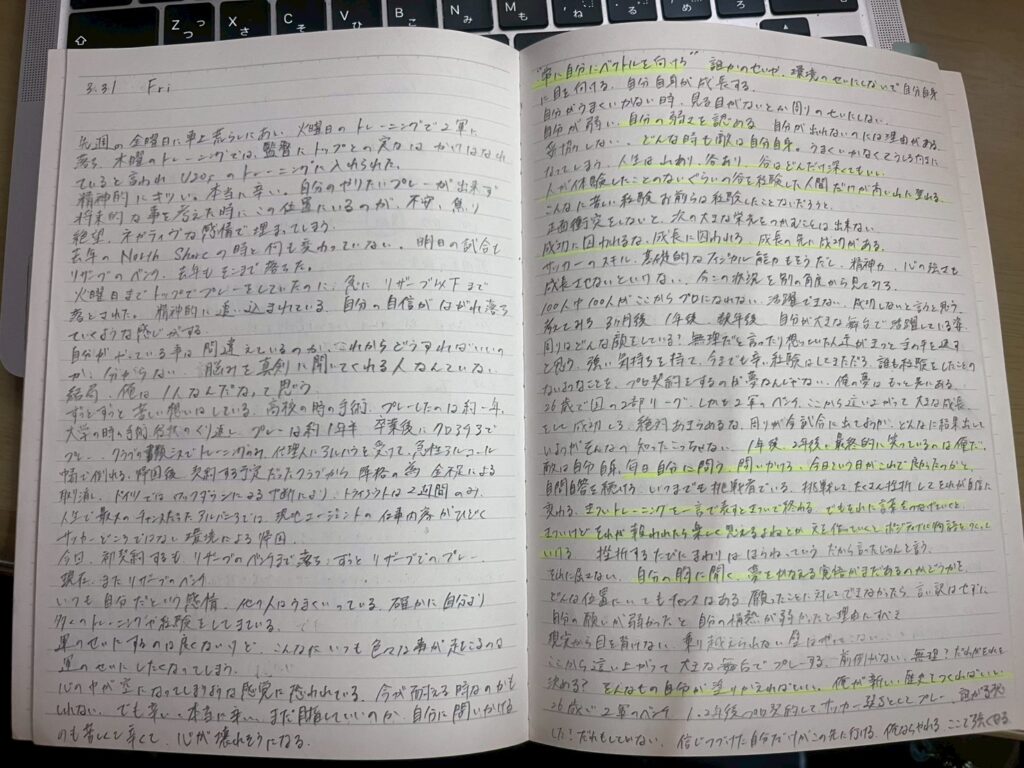 Z
つっ
X
さ
C
そ
V
ひ
B
こ
N
み
M
も
3.31 Fri
先週の金曜日に車上荒らしにあい、火曜日のトレーニングで2軍に
落ち、木曜のトレーニングでは、監督にトップとの実力はかけはなれ
ていると言われ U20sのトレーニングに入れられた。
精神的にきつい。本当に辛い。自分のやりたいプレーが出来ず
将来的な事を考えた時にこの位置にいるのが、不安、焦り
絶望、ネガティブな感情で埋まってしまう。
去年のNorth Shoreの時と何も変わっていない。明日の試合も
リザーブのベンチ、去年もそこまで落ちた。
火曜日までトップでプレーをしていたのに、急にリザーブ以下まで
落とされた。精神的に追い込まれている。自分の自信がはがれ落ち
ていくような感じがする。
自分がやっている事は間違えているのか、これからどうすればいいの
か、分からない。悩みを真剣に聞いてくれる人なんていない
結局、俺は1人なんだなって思う。
ずっとずっと苦しい想いはしている。高校の時の手術、プレーしたのは約一年、
大学の時の手術、のくり返し、プレーは約1年半 卒業後にクロアチアで
プレー クラブの書類ミスでトレーニングのみ、代理人にアルハラを受けて、急性アルコール
中毒で倒れる。帰国後 契約する予定だったクラブから 降格の為 金不足による
取消し、ドイツではロックダウンによる中断により、トライアウトは2週間のみ、
人生で最大のチャンスだったアルバニアでは 現地エージェントの仕事内容がひどく
サッカーどころではない環境による帰国
今回、契約するも、リザーブのベンチまで落ち、ずっとリザーブでのプレー
現在、またリザーブのベンチ
いつも自分だという感情、他の人はうまくいっている。確かに自分より
多くのトレーニングや経験をしてきている。
運のせいにするのは良くないけど、こんなにいつも色々な事が起こるのは
運のせいにしたくなってしまう。
心の中が空になってしまうような感覚に恐われている。今が耐える時なのかも
しれない、でも辛い、本当に辛い、まだ目指していいのか、自分に問いかける
のも苦しくて辛くて、心が壊れそうになる。
"常に自分にベクトルを向ける" 誰かのせいや、環境のせいにしないで自分自身
に目を付ける、自分自身が成長する。
自分がうまくいかない時、見る目がないとか周りのせいにしない。
自分が弱い、自分の弱さを認める 自分が出れないのには理由がある。
妥協しない、どんな時も敵は自分自身。うまくいかなくてうしろ向きに
なってしまう、人生は山あり、谷あり、谷はどんだけ深くてもいい。
人が体験したことのないぐらいの谷を経験した人間だけが高い山に登れる。
こんなに苦しい経験 お前らは経験したことないだろうと、
正面衝突をしないと、次の大きな栄光をつかむことは出来ない。
成功に囚われるな、成長に囚われろ、成長の先に成功がある。
サッカーのスキル、基礎的なフィジカル能力もそうだし、精神力、心の強さも
成長させないといけない、今この状況を別の角度から見てみる、
100人中100人がここからプロになれない、活躍できない、成功しないと言うと思う。
考えてみろ 3ヶ月後 1年後、数年後 自分が大きな舞台で活躍している姿、
周りはどんな顔をしている? 無理だと言ったり思っていた人達がきっと手の平を返す
と思う、強い気持ちを持て、今までも辛い経験はしてきただろ、誰も経験したことの
ないようなことを、プロ契約をするのが夢なんじゃない、俺の夢はもっと先にある。
26歳で国の2部リーグ、しかも2軍のベンチ、ここから這い上がって大きな成長
をして成功しろ、絶対あきらめるな、周りが今試合に出てようが、どんなに結果出して
いようがそんなの知ったこっちゃない、1年後、2年後、最終的に笑っているのは俺だ。
敵は自分自身、毎日自分に問う、問いかける、今日という日がこれで良かったのかと
自問自答を続ける、いつまでも挑戦者でいる、挑戦してたくさん挫折しそれが自信に
変わる、きついトレーニングを一言で表すときついで終わる、でもそれに言葉をつなげていくと、
きついけどそれが報われたら楽しく思えるよねとか文を作っていくとポジティブに物語をつくって
いける、挫折するたびにまわりはほらねっていう だから言ったじゃんと言う。
それに屈さない、自分の胸に聞く、夢をかなえる覚悟がまだあるのかどうかを、
どんな位置にいてもチャンスはある 願ったことに対してできなかったら言い訳はせずに
自分の願いが弱かったと、自分の情熱が弱かったと理由にすべき
現実から目を背けない、乗り越えられない壁はやってこない、
ここから這い上がって 大きな舞台でプレーする、前例がない、無理? だれがそれを
決める? そんなもの自分が塗りかえればいい、俺が新しい歴史をつくればいい
26歳で 2軍のベンチ 1,2年後プロ契約してサッカー選手としてプレー、誰が予想
した! だれもしていない、信じつづけた自分だけがこの先に行ける、俺ならやれる ここで強くなる